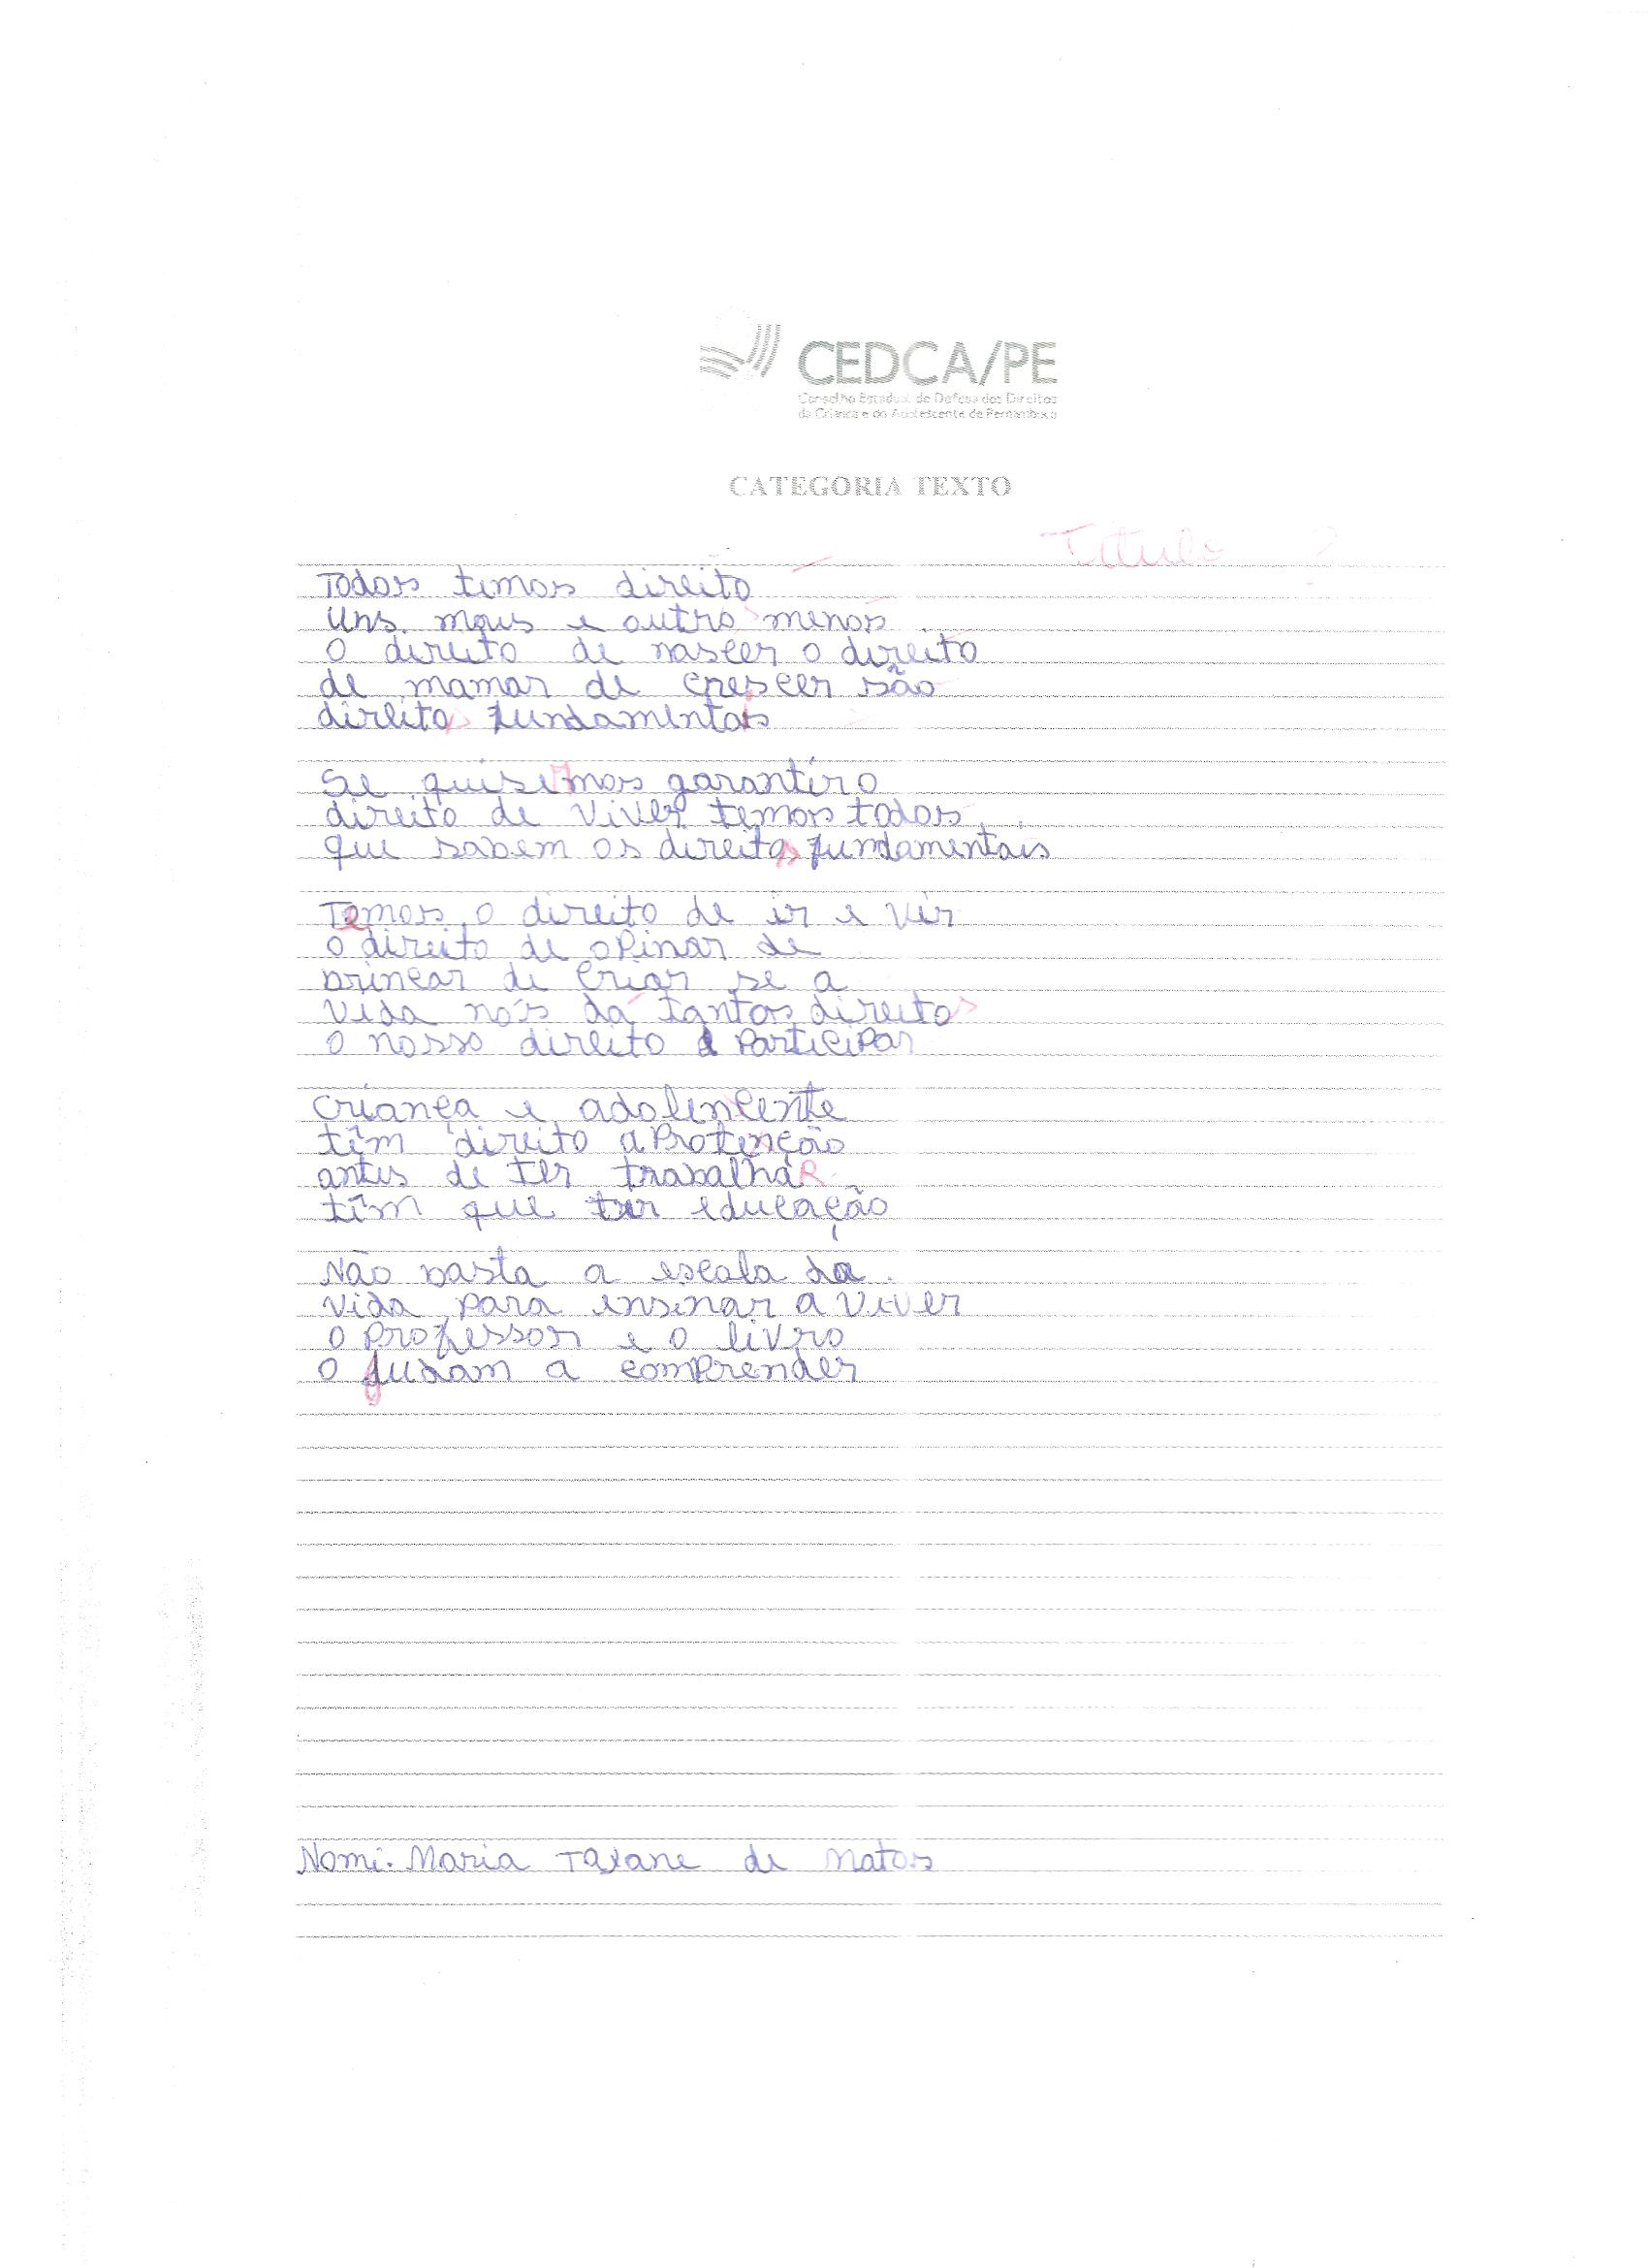 CEDCA/PE
Conselho Estadual de Defesa dos Direitos
da Criança e do Adolescente de Pernambuco
CATEGORIA TEXTO
Titulo ?
Todos temos direito
Uns mais e outros menos
O direito de nascer o direito
de mamar de crescer são
direitos fundamentais
Se quisermos garantir o
direito de viver temos todos
que sabem os direitos fundamentais
Temos o direito de ir e vir
o direito de opinar de
brincar de criar se a
vida nós dá tantos direitos
o nosso direito é participar
criança e adolencente
têm direito a Protenção
antes de ter trabalhaR
têm que ter educação
Não basta a escola da
vida para ensinar a viver
o professor e o livro
o judam a comprender
Nome: Maria Taiane de Matos